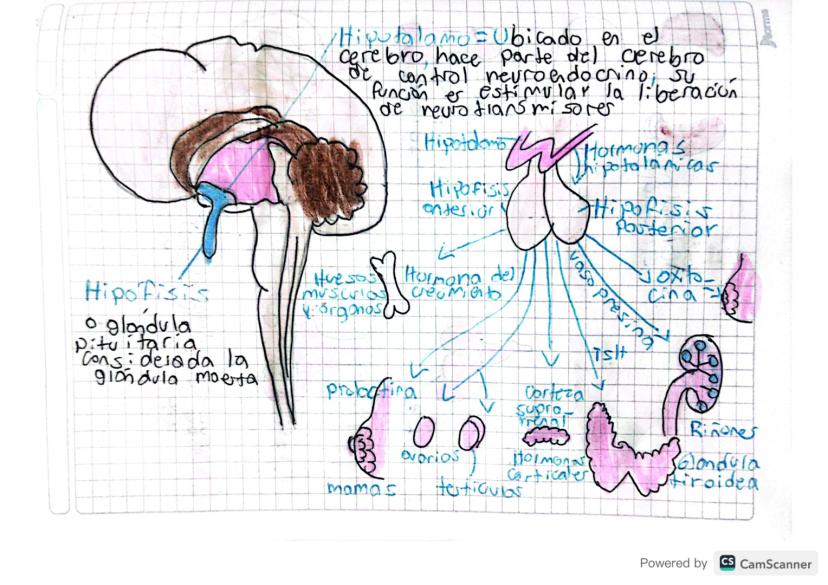 Hipotalamo = Ubicado en el
cerebro, hace parte del cerebro
de control neuroendocrino, su
función es estimular la liberación
de neurotransmisores
Hipotalamo
Hormonas
hipotalamicas
Hipofisis
anterior
Hipofisis
Posterior
Hipofisis
o glandula
pituitaria
considerada la
glandula maestra
Huesos
musculos
y organos
Hormona del
crecimiento
vasopresina
oxito-
cina
TSH
prolactina
corteza
supra-
rrenal
Riñones
ovarios
Hormonas
corticales
Glandula
tiroidea
mamas
testiculos
norma
Powered by CS CamScanner